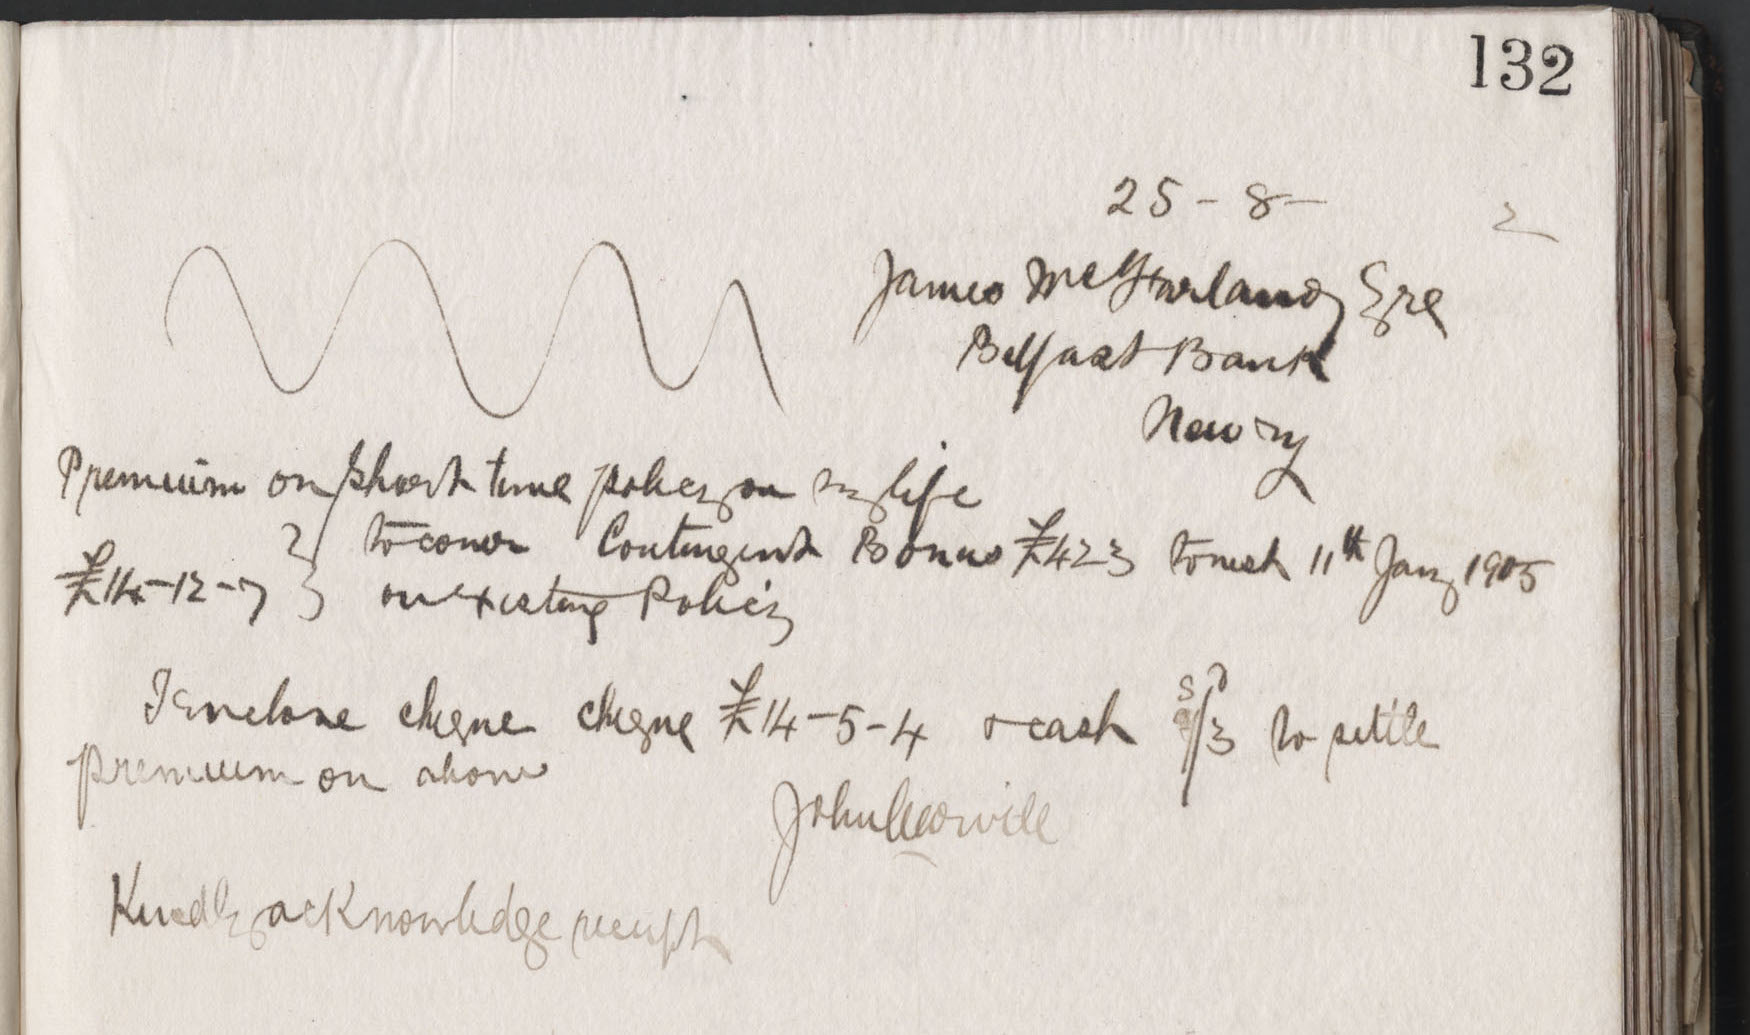 132
25 - 8 - 2
James McFarland Esre
Belfast Bank
Newry
Premium on short time policy on my life
£14-12-7 } to cover Contingent Bonus £423 to next 11th Jany 1905
on existing Policy
I enclose cheque cheque £14-5-4 & cash /3 to settle
premium on above
John
Kindly acknowledge receipt